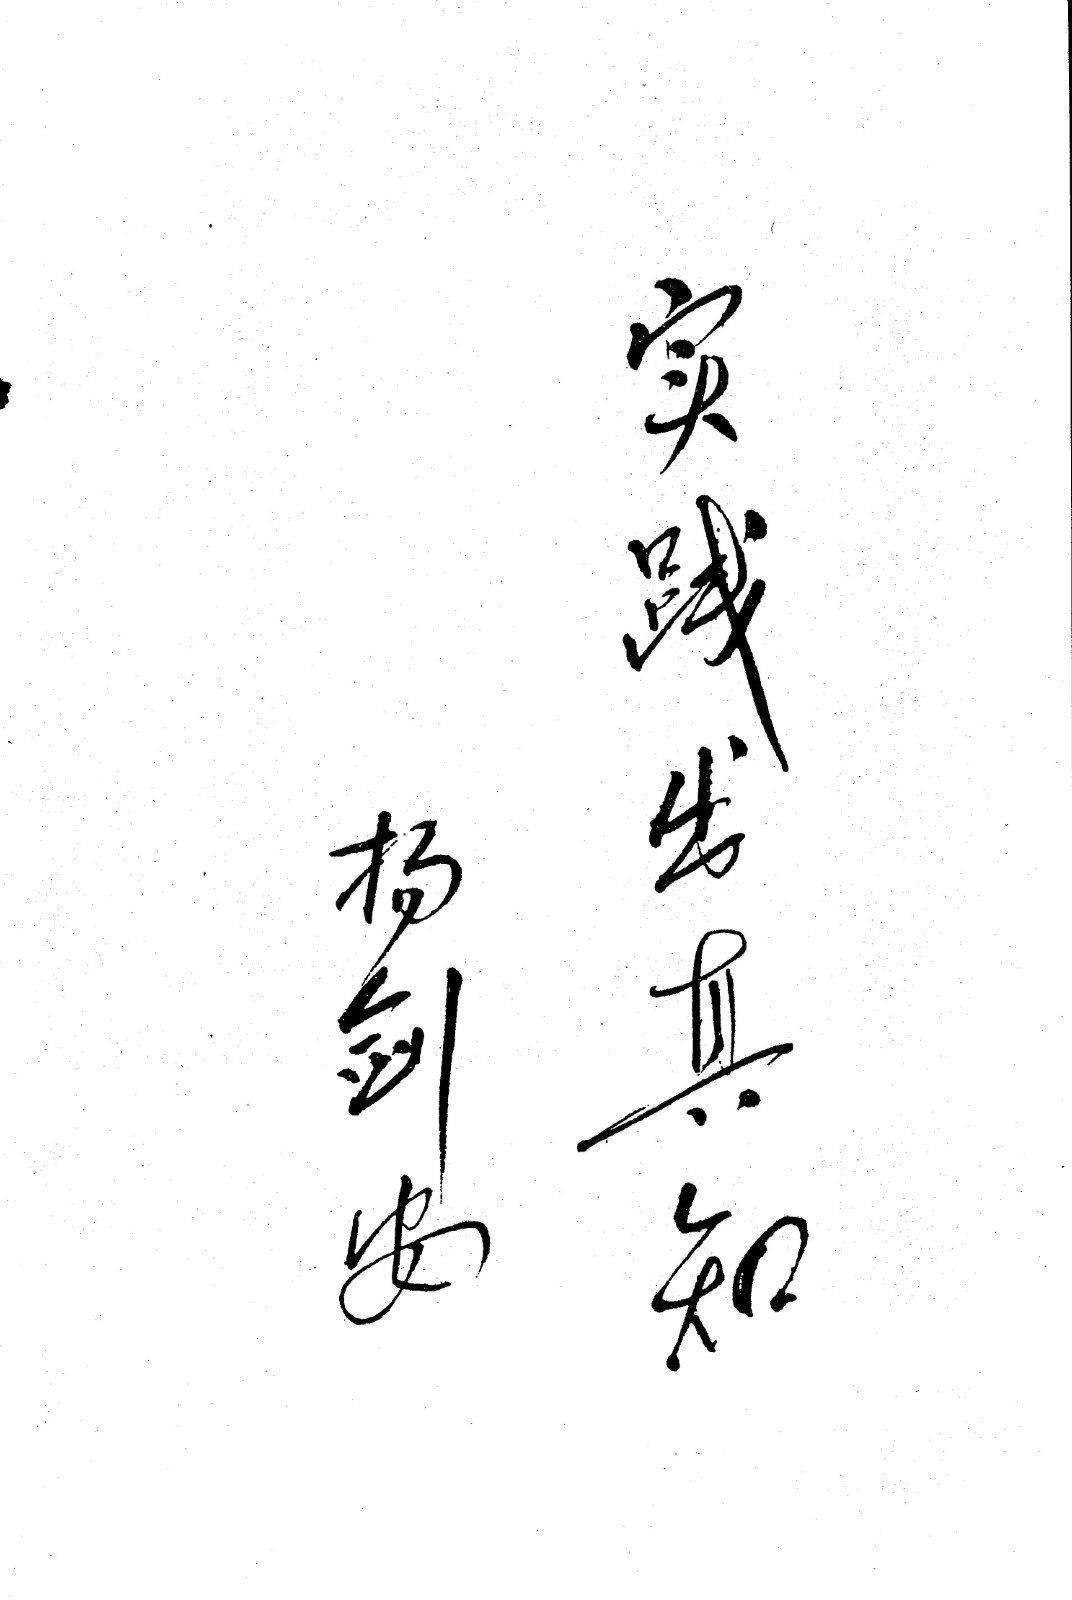 实践出真知
杨剑安